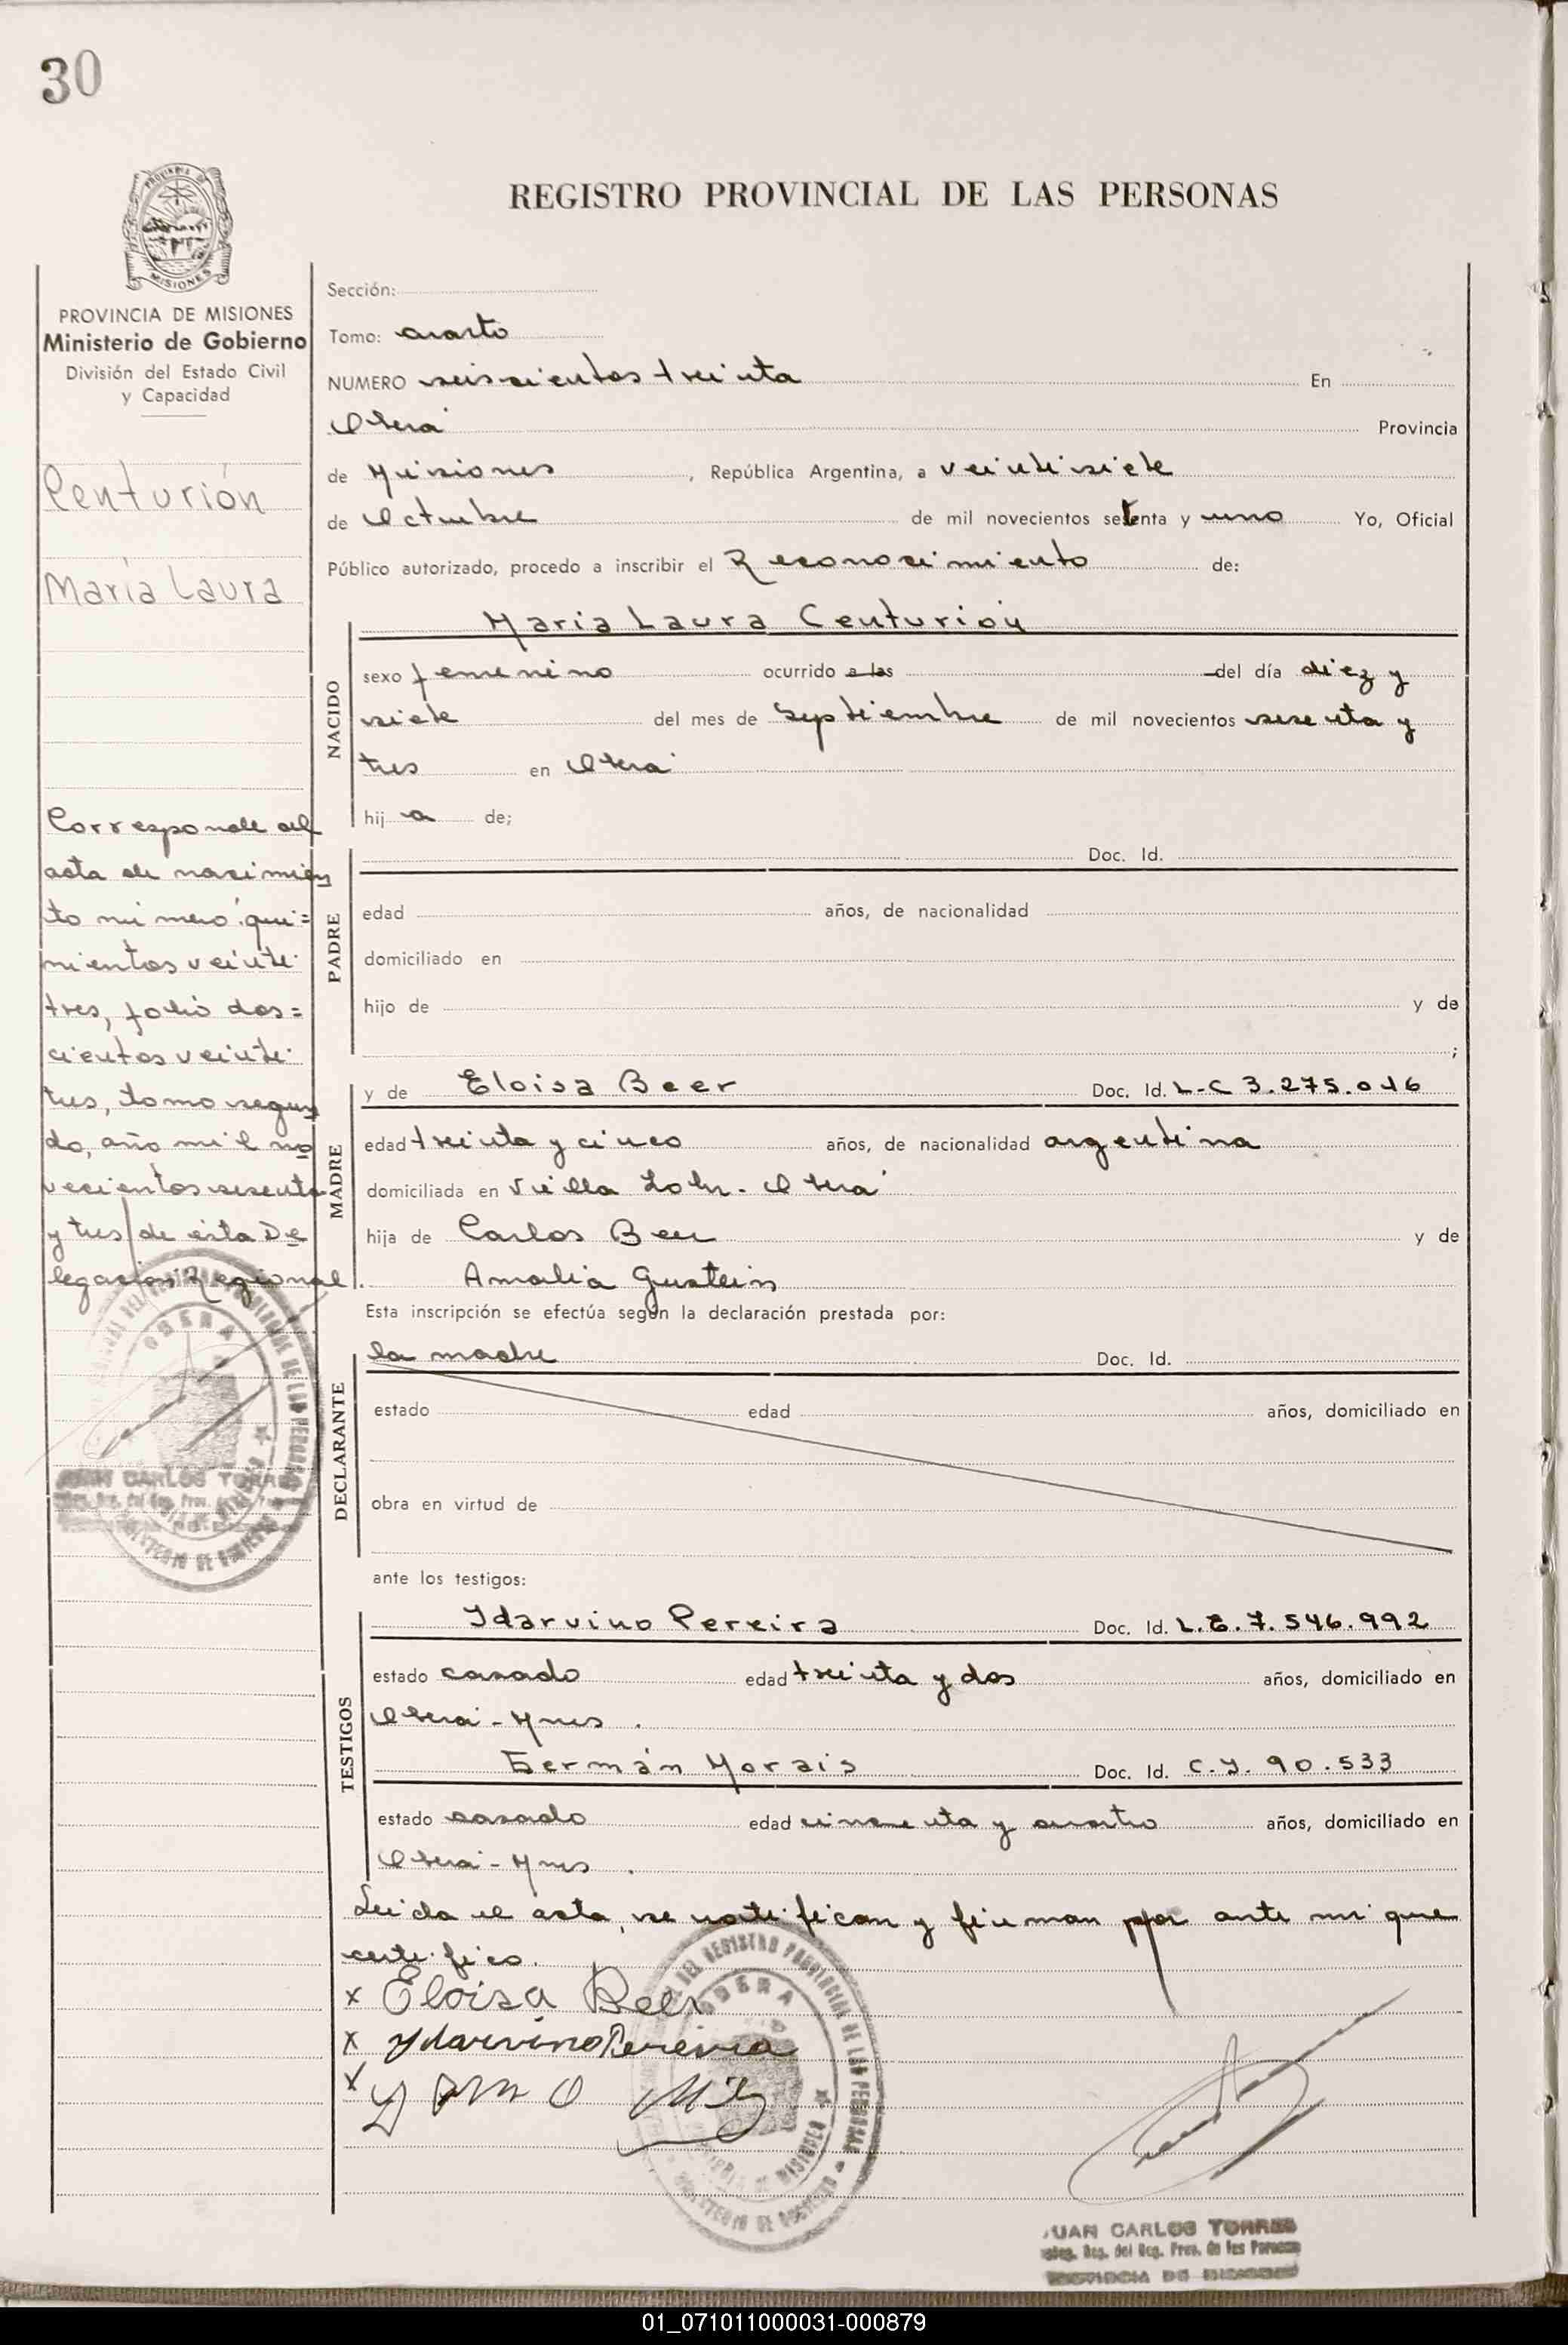 30
PROVINCIA DE
MISIONES
REGISTRO PROVINCIAL DE LAS PERSONAS
PROVINCIA DE MISIONES
Ministerio de Gobierno
División del Estado Civil
y Capacidad
Centurión
María Laura
Corresponde al
acta de nacimien
to número qui=
nientos veinti
tres, folio dos=
cientos veinti
tres, tomo segun
do, año mil no
vecientos sesenta
y tres de esta De
legación Regional.
OBERA
JUAN CARLOS TORRES
Sección:
Tomo: cuarto
NUMERO seiscientos treinta En
Oberá Provincia
de Misiones, República Argentina, a veintisiete
de Octubre de mil novecientos setenta y uno Yo, Oficial
Público autorizado, procedo a inscribir el Reconocimiento de:
NACIDO
María Laura Centurión
sexo femenino ocurrido a las del día diez y
siete del mes de Septiembre de mil novecientos sesenta y
tres en Oberá
hij a de;
PADRE
Doc. Id.
edad años, de nacionalidad
domiciliado en
hijo de y de
;
MADRE
y de Eloisa Beer Doc. Id. L-C 3.275.016
edad treinta y cinco años, de nacionalidad argentina
domiciliada en Villa Lohr. Oberá
hija de Carlos Beer y de
Amalia
Esta inscripción se efectúa según la declaración prestada por:
DECLARANTE
la madre Doc. Id.
estado edad años, domiciliado en
obra en virtud de
ante los testigos:
TESTIGOS
Ydarvino Pereira Doc. Id. L.E. 7.546.992
estado casado edad treinta y dos años, domiciliado en
Oberá - Mnes.
Germán Morais Doc. Id. C.I. 90.533
estado casado edad cincuenta y cuatro años, domiciliado en
Oberá - Mnes.
Leida el acta, se ratifican y firman por ante mi que
certifico.
x Eloisa Beer
x Ydarvino Pereira
x
OBERA
JUAN CARLOS TORRES
Deleg. Reg. del Reg. Prov. de las Personas
PROVINCIA DE MISIONES
01_071011000031-000879